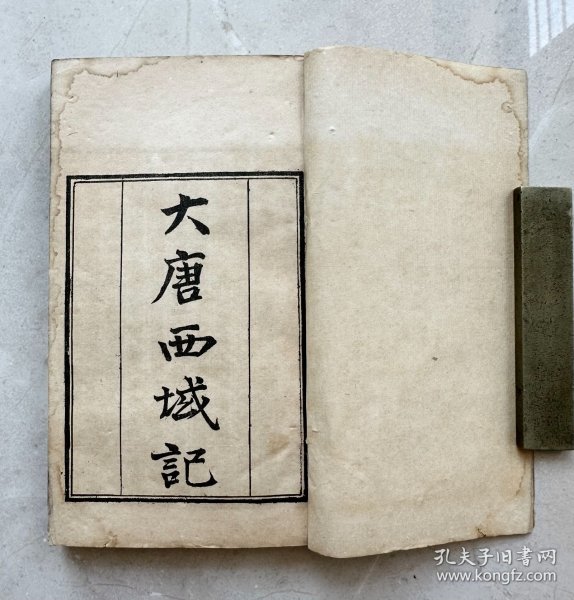 大唐西域記
孔夫子旧书网
www.kongfz.com